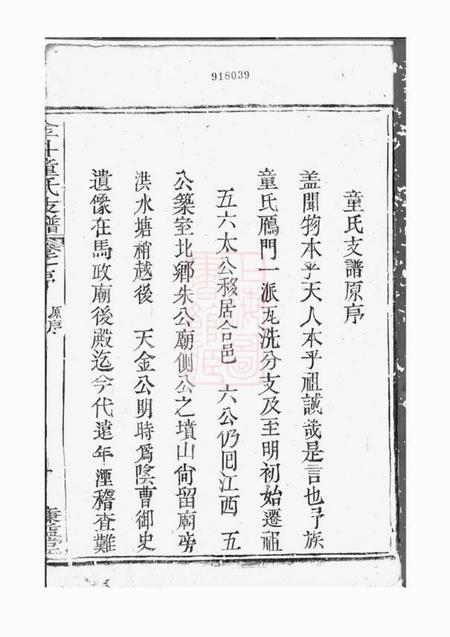 918039
童氏支譜原序
蓋聞物本乎天人本乎祖誠哉是言也予族
童氏鴈門一派瓦洗分支及至明初始遷祖
五六太公移居合邑 六公仍囘江西 五
公築室北鄉朱公廟側公之墳山尙留廟旁
洪水塘稍越後 天金公明時爲陰曹御史
遺像在馬政廟後殿迄今代遠年湮稽查難
童氏支譜
卷之一序
原序